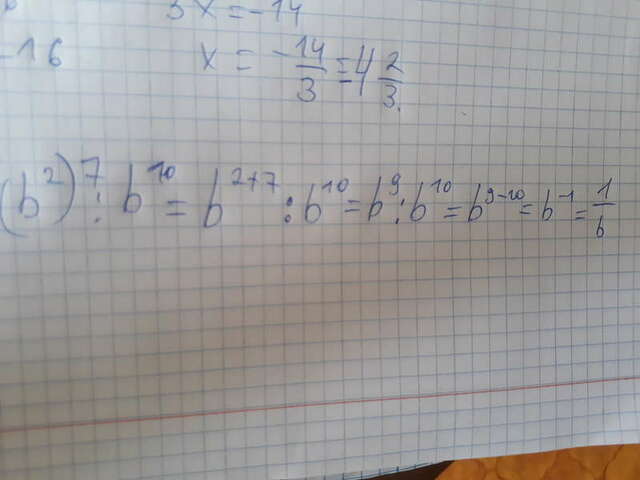 3x=-14
-16
x = -14/3 = 4 2/3.
(b²)⁷ : b¹⁰ = b²⁺⁷ : b¹⁰ = b⁹ : b¹⁰ = b⁹⁻¹⁰ = b⁻¹ = 1/b